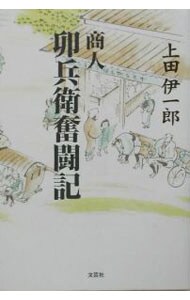 上田伊一郎
商人
卯兵衛奮闘記
文芸社